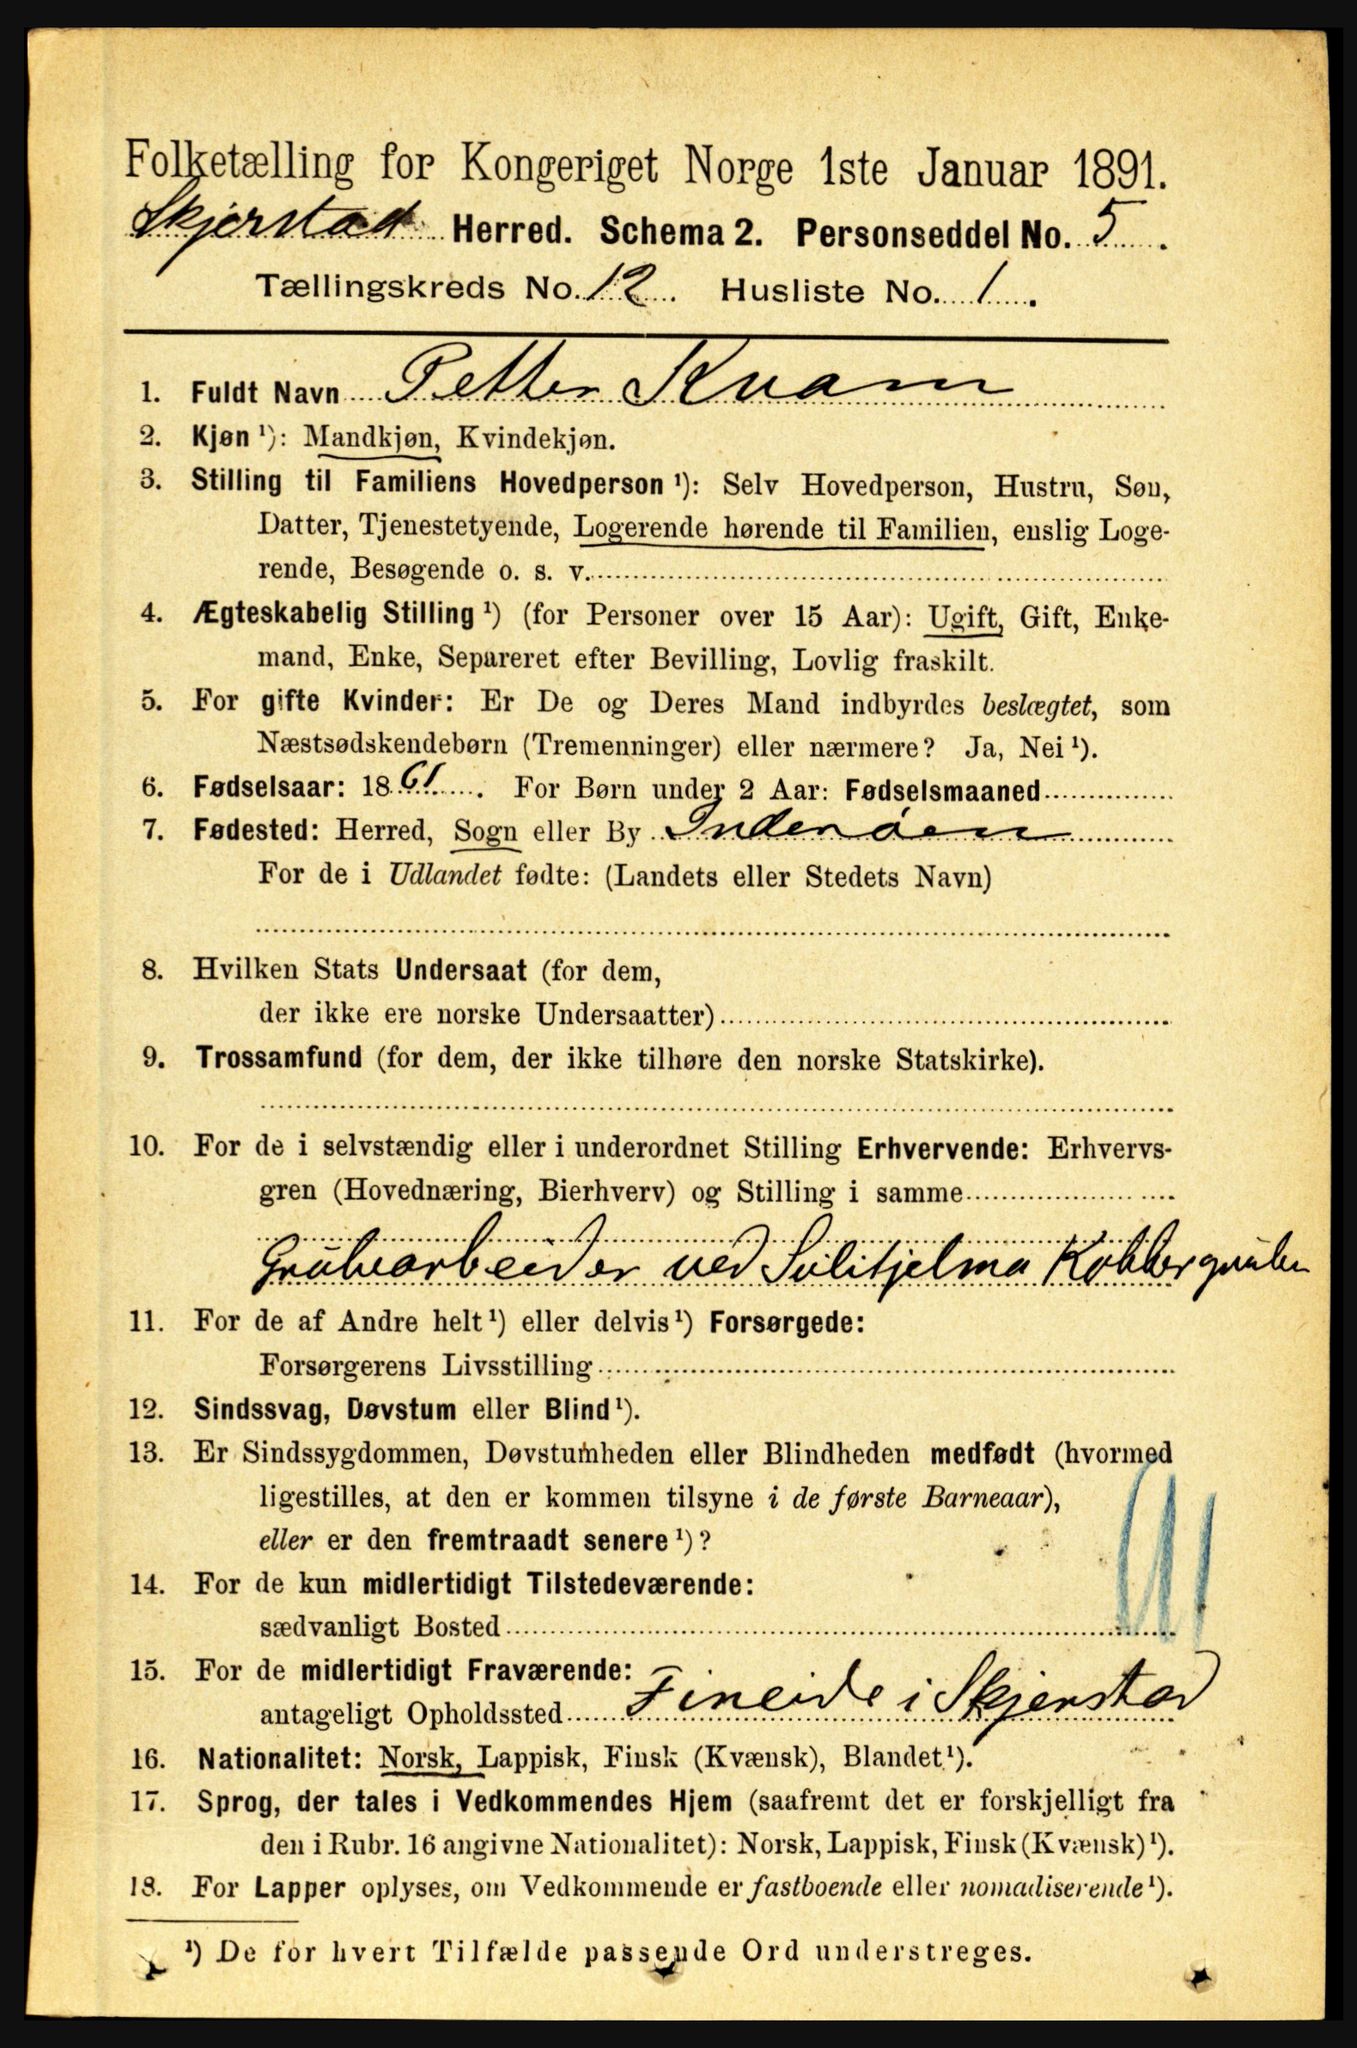 Folketælling for Kongeriget Norge 1ste Januar 1891.
Skjerstad Herred. Schema 2. Personseddel No. 5.
Tællingskreds No. 12. Husliste No. 1.
1. Fuldt Navn Petter Kvam
2. Kjøn ¹): Mandkjøn, Kvindekjøn.
3. Stilling til Familiens Hovedperson ¹): Selv Hovedperson, Hustru, Søn,
Datter, Tjenestetyende, Logerende hørende til Familien, enslig Loge-
rende, Besøgende o. s. v.
4. Ægteskabelig Stilling ¹) (for Personer over 15 Aar): Ugift, Gift, Enke-
mand, Enke, Separeret efter Bevilling, Lovlig fraskilt.
5. For gifte Kvinder: Er De og Deres Mand indbyrdes beslægtet, som
Næstsødskendebørn (Tremenninger) eller nærmere? Ja, Nei ¹).
6. Fødselsaar: 1861. For Børn under 2 Aar: Fødselsmaaned
7. Fødested: Herred, Sogn eller By Inderøen
For de i Udlandet fødte: (Landets eller Stedets Navn)
8. Hvilken Stats Undersaat (for dem,
der ikke ere norske Undersaatter)
9. Trossamfund (for dem, der ikke tilhøre den norske Statskirke).
10. For de i selvstændig eller i underordnet Stilling Erhvervende: Erhvervs-
gren (Hovednæring, Bierhverv) og Stilling i samme
Grubearbeider ved Sulitjelma Kobbergruber
11. For de af Andre helt ¹) eller delvis ¹) Forsørgede:
Forsørgerens Livsstilling
12. Sindssvag, Døvstum eller Blind ¹).
13. Er Sindssygdommen, Døvstumheden eller Blindheden medfødt (hvormed
ligestilles, at den er kommen tilsyne i de første Barneaar),
eller er den fremtraadt senere ¹)?
14. For de kun midlertidigt Tilstedeværende:
sædvanligt Bosted
15. For de midlertidigt Fraværende:
antageligt Opholdssted Fineide i Skjerstad
16. Nationalitet: Norsk, Lappisk, Finsk (Kvænsk), Blandet ¹).
17. Sprog, der tales i Vedkommendes Hjem (saafremt det er forskjelligt fra
den i Rubr. 16 angivne Nationalitet): Norsk, Lappisk, Finsk (Kvænsk) ¹).
18. For Lapper oplyses, om Vedkommende er fastboende eller nomadiserende ¹).
¹) De for hvert Tilfælde passende Ord understreges.